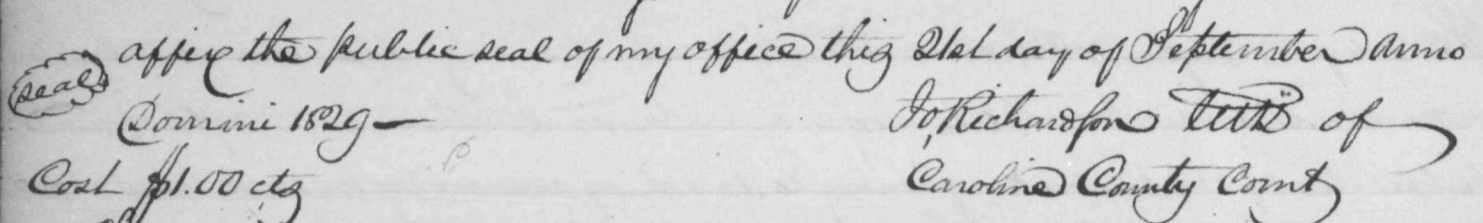 affix the public seal of my office this 21st day of September Anno
seal
Domini 1829 —
Jo Richardson Clk of
Cost $1.00 cts
Caroline County Court